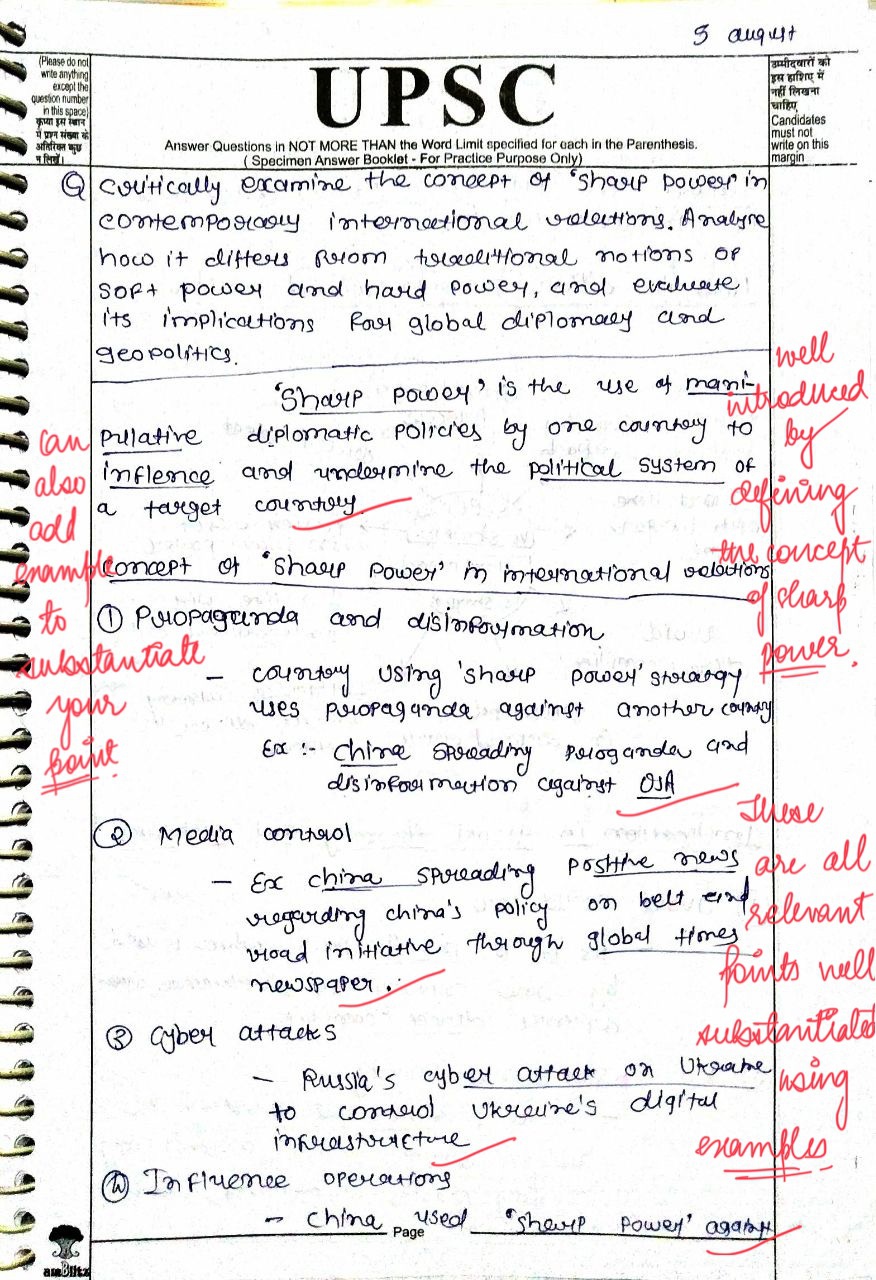 5 august
(Please do not
write anything
except the
question number
in this space)
कृपया इस स्थान
में प्रश्न संख्या के
अतिरिक्त कुछ
न लिखें।
UPSC
Answer Questions in NOT MORE THAN the Word Limit specified for each in the Parenthesis.
( Specimen Answer Booklet - For Practice Purpose Only)
उम्मीदवारों को
इस हाशिए में
नहीं लिखना
चाहिए
Candidates
must not
write on this
margin
Q Critically examine the concept of 'sharp power' in
contemporary international relations. Analyse
how it differs from traditional notions of
soft power and hard power, and evaluate
its implications for global diplomacy and
geopolitics.
'Sharp power' is the use of mani-
pulative diplomatic policies by one country to
inflence and undermine the political system of
a target country.
well
introduced
by
defining
the concept
of sharp
power.
can
also
add
example
to
substantiate
your
point
Concept of 'Sharp power' in international relations
① Propaganda and disinformation
- country using 'sharp power' strategy
uses propaganda against another country
Ex :- China spreading proganda and
disinformation against USA
② Media control
- Ex china spreading positive news
regarding china's policy on belt and
road initiative through global times
newspaper.
These
are all
relevant
points well
substantiated
using
examples
③ Cyber attacks
- Russia's cyber attack on Ukraine
to control Ukraine's digital
infrastructure
④ Influence operations
- China used 'sharp power' against
Page
amBlitz